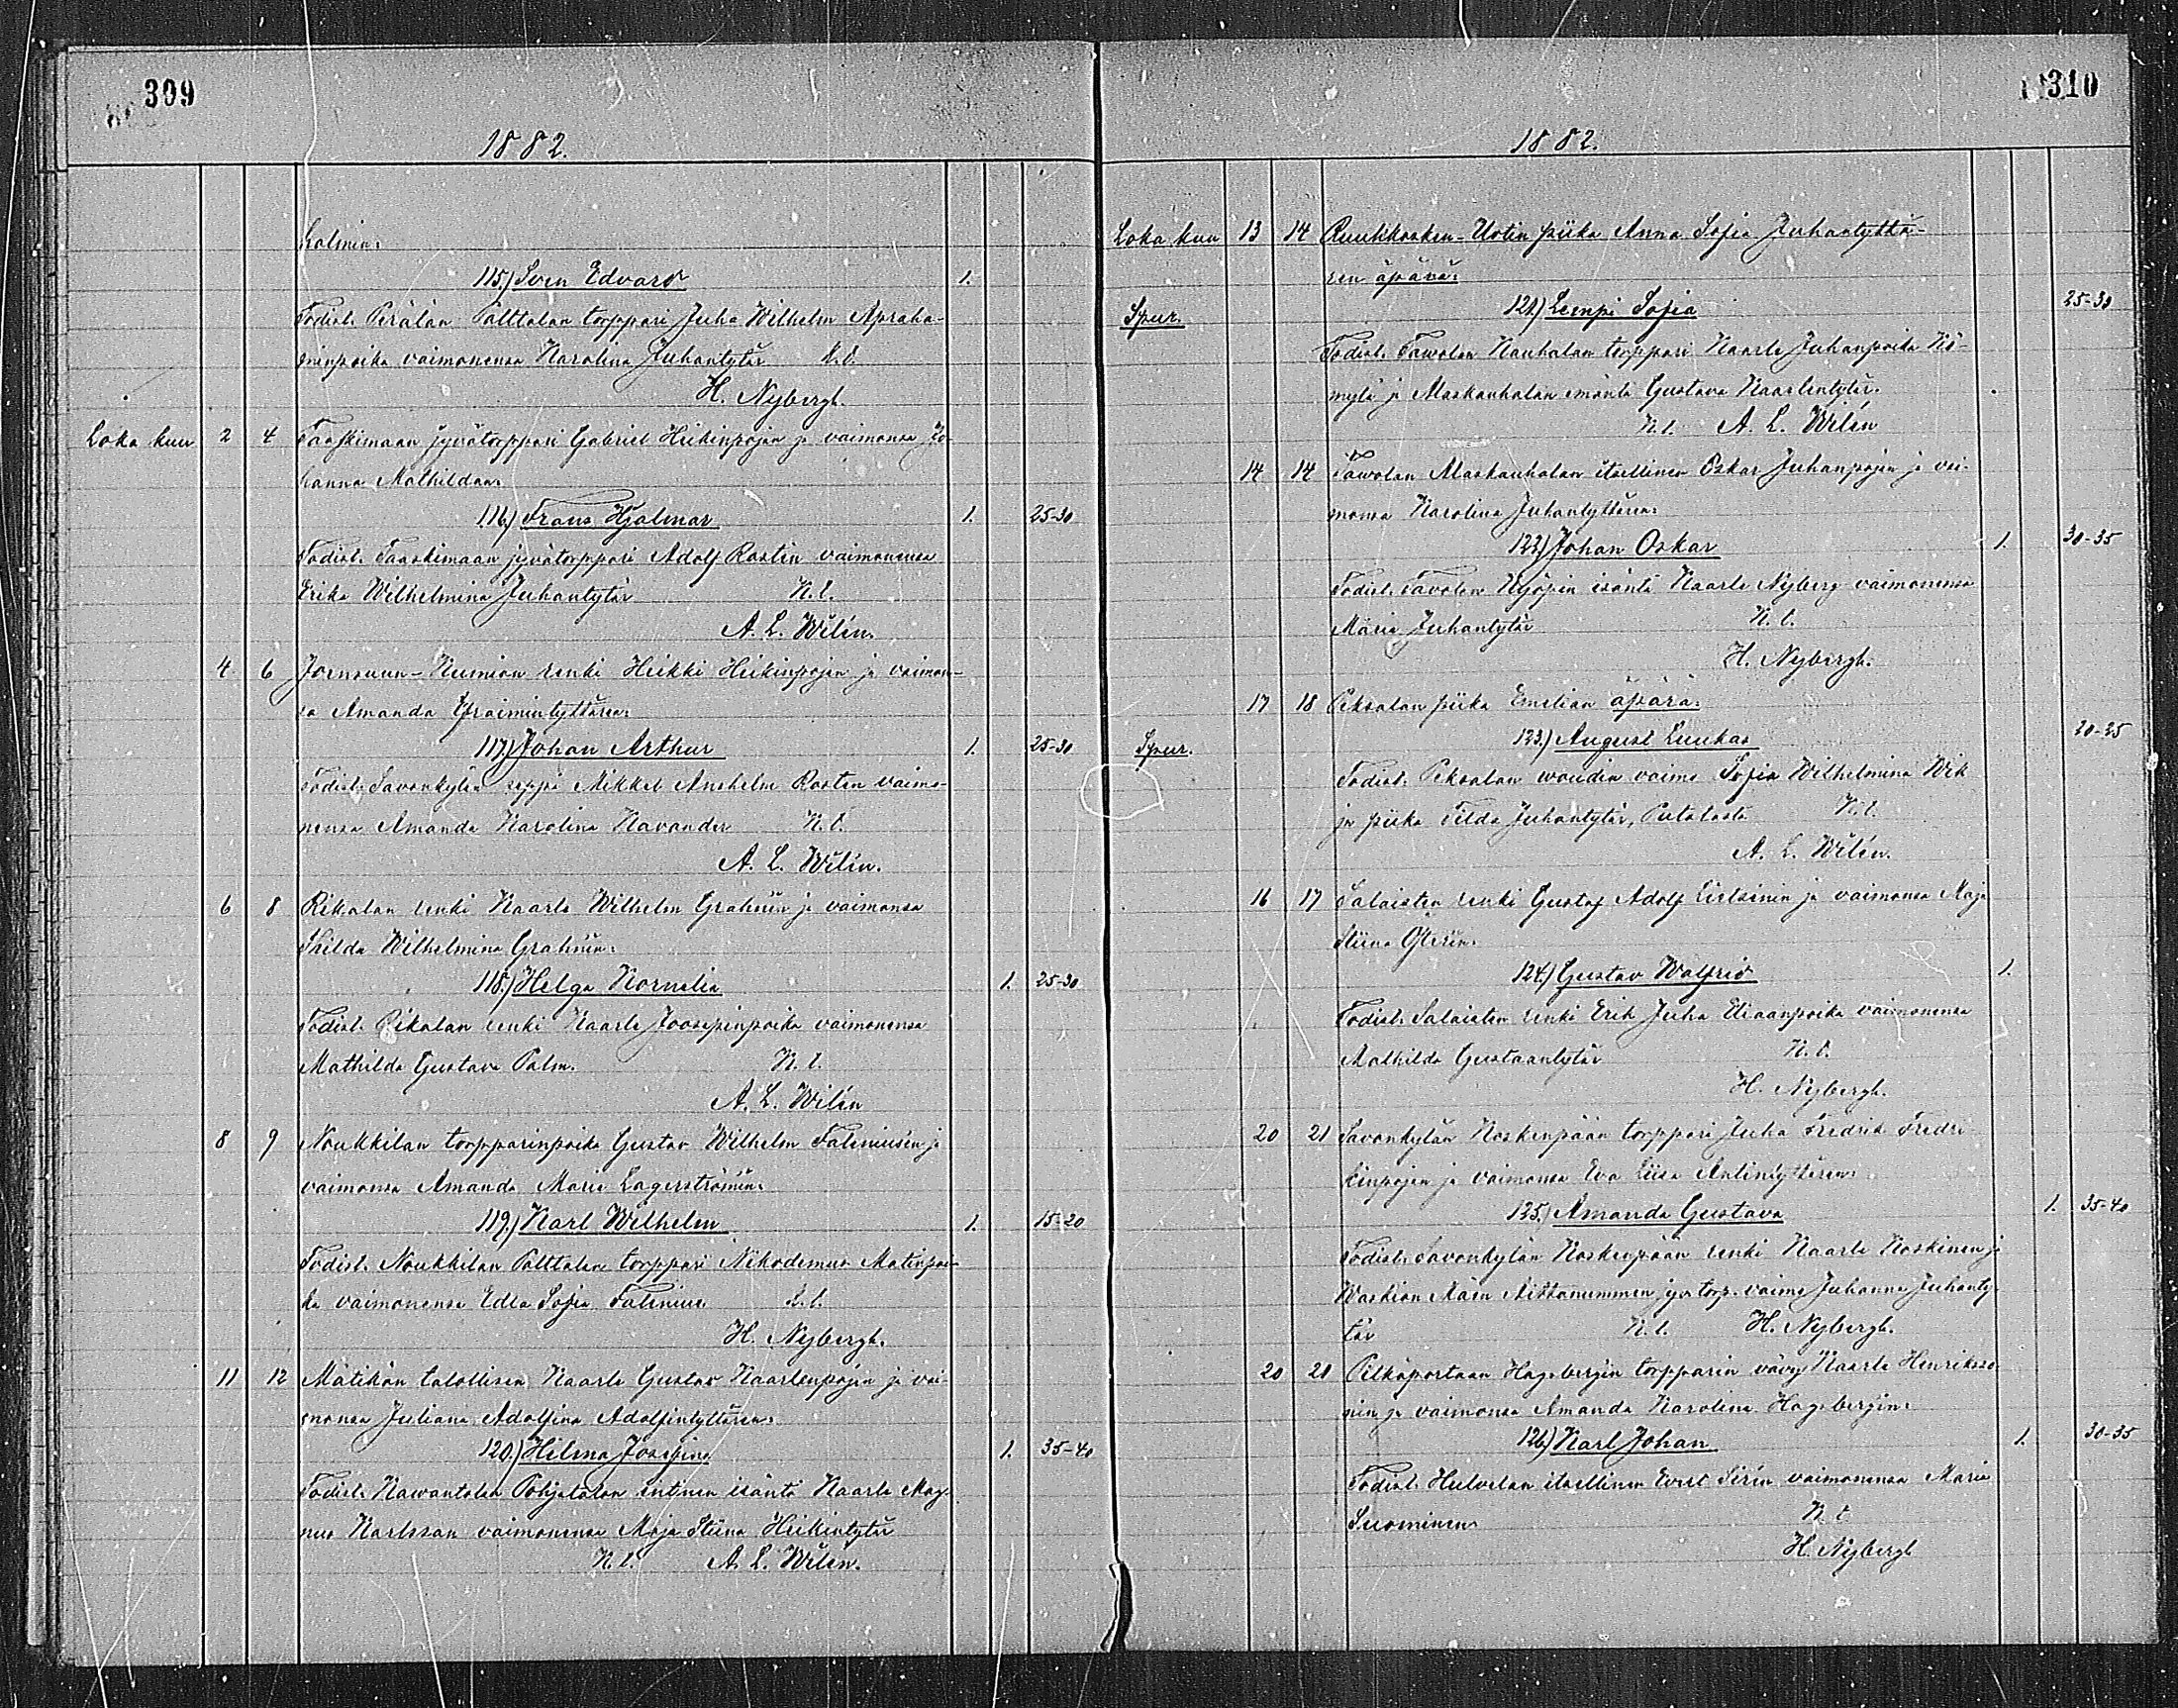 309
1882.
holmin.
115.) Sven Edvard 1.
Todist. Perälän Palttalan torppari Juha Wilhelm Apraha-
minpoika vaimonensa Karolina Juhantytär k.l.
H. Nybergh.
Loka kuu 2 4 Taaskimaan jyvätorppari Gabriel Heikinpojan ja vaimonsa Jo-
hanna Mathildan.
116.) Frans Hjalmar 1. 25-30
Todist. Taaskimaan jyvätorppari Adolf Rostin vaimonensa
Erika Wilhelmina Juhantytär K.l.
A. L. Wilén.
4 6 Joensuun-Numion renki Heikki Heikinpojan ja vaimon-
sa Amanda Efraimintyttären.
117.) Johan Arthur 1. 25-30
Todist. Savonkylän seppä Mikkel Anshelm Rosten vaimo-
nensa Amanda Karolina Navander K.l.
A. L. Wilén.
6 8 Rikalan renki Kaarle Wilhelm Grahnin ja vaimonsa
Thilda Wilhelmina Grahnin.
118.) Helga Kornelia 1. 25-30
Todist. Rikalan renki Kaarle Joosepinpoika vaimonensa
Mathilda Gustava Palm. K.l.
A. L. Wilén
8 9 Noukkilan torpparinpoika Gustav Wilhelm Faleniusen ja
vaimonsa Amanda Maria Lagerströmin.
119.) Karl Wilhelm 1. 15-20
Todist. Noukkilan Palttalan torppari Nikodemus Matinpoi-
ka vaimonensa Edla Sofia Falenius. k.l.
H. Nybergh.
11 12 Mätikön talollisen Kaarle Gustav Kaarlenpojan ja vai-
monsa Juliana Adolfina Adolfintyttären.
120.) Hilma Josefina 1. 35-40
Todist. Kawantolan Pohjatalon entinen isäntä Kaarle Mag-
nus Karlsson vaimonensa Maja Stiina Heikintytär
K.l. A. L. Wilén.
310
1882.
Loka kuu 13 14 Ruuhikosken-Uotin piika Anna Sofia Juhantyttä-
ren äpärä.
Spur. 121.) Lempi Sofia 25-30
Todist. Tawolan Kauhalan torppari Kaarle Juhanpoika
ja Maskauhalan emäntä Gustava Kaarlentytär.
K.l. A. L. Wilén
14 14 Tawolan Maskauhalan itsellinen Oskar Juhanpojan ja vai-
monsa Karolina Juhantyttären.
122.) Johan Oskar 1. 30-35
Todist. Tavolan Kjöpin isäntä Kaarle Nyberg vaimonensa
Maria Juhantytär K.l.
H. Nybergh.
17 18 Peksalan piika Emilian äpärä.
Spur. 123.) August Luukas 20-25
Todist. Peksalan woudin vaimo Sofia Wilhelmina Wik
ja piika Tilda Juhantytär, K.l.
A. L. Wilén.
16 17 Salaisten renki Gustaf Adolf ja vaimonsa Maja
Stiina
124.) Gustav Walfrid 1.
Todist. Salaisten renki Erik Juha Eliaanpoika vaimonensa
Mathilda Gustaantytär K.l.
H. Nybergh.
20 21 Savonkylän Koskenpään torppari Juha Fredrik Fredri-
kinpojan ja vaimonsa Eva Liisa Antintyttären.
125.) Amanda Gustava 1. 35-40
Todist. Savonkylän Koskenpään renki Kaarle Koskinen ja
Waskion jyv. torp. vaimo Juhanna Juhanty-
tär K.l. H. Nybergh.
20 21 Pitkäportaan Hagsbergin torpparin vävy Kaarle Henriksso-
nin ja vaimonsa Amanda Karolina Hagsbergin.
126.) Karl Johan 1. 30-35
Todist. Hulvelan itsellinen Evert Sirén vaimonensa Maria
Suominen. K.l
H. Nybergh